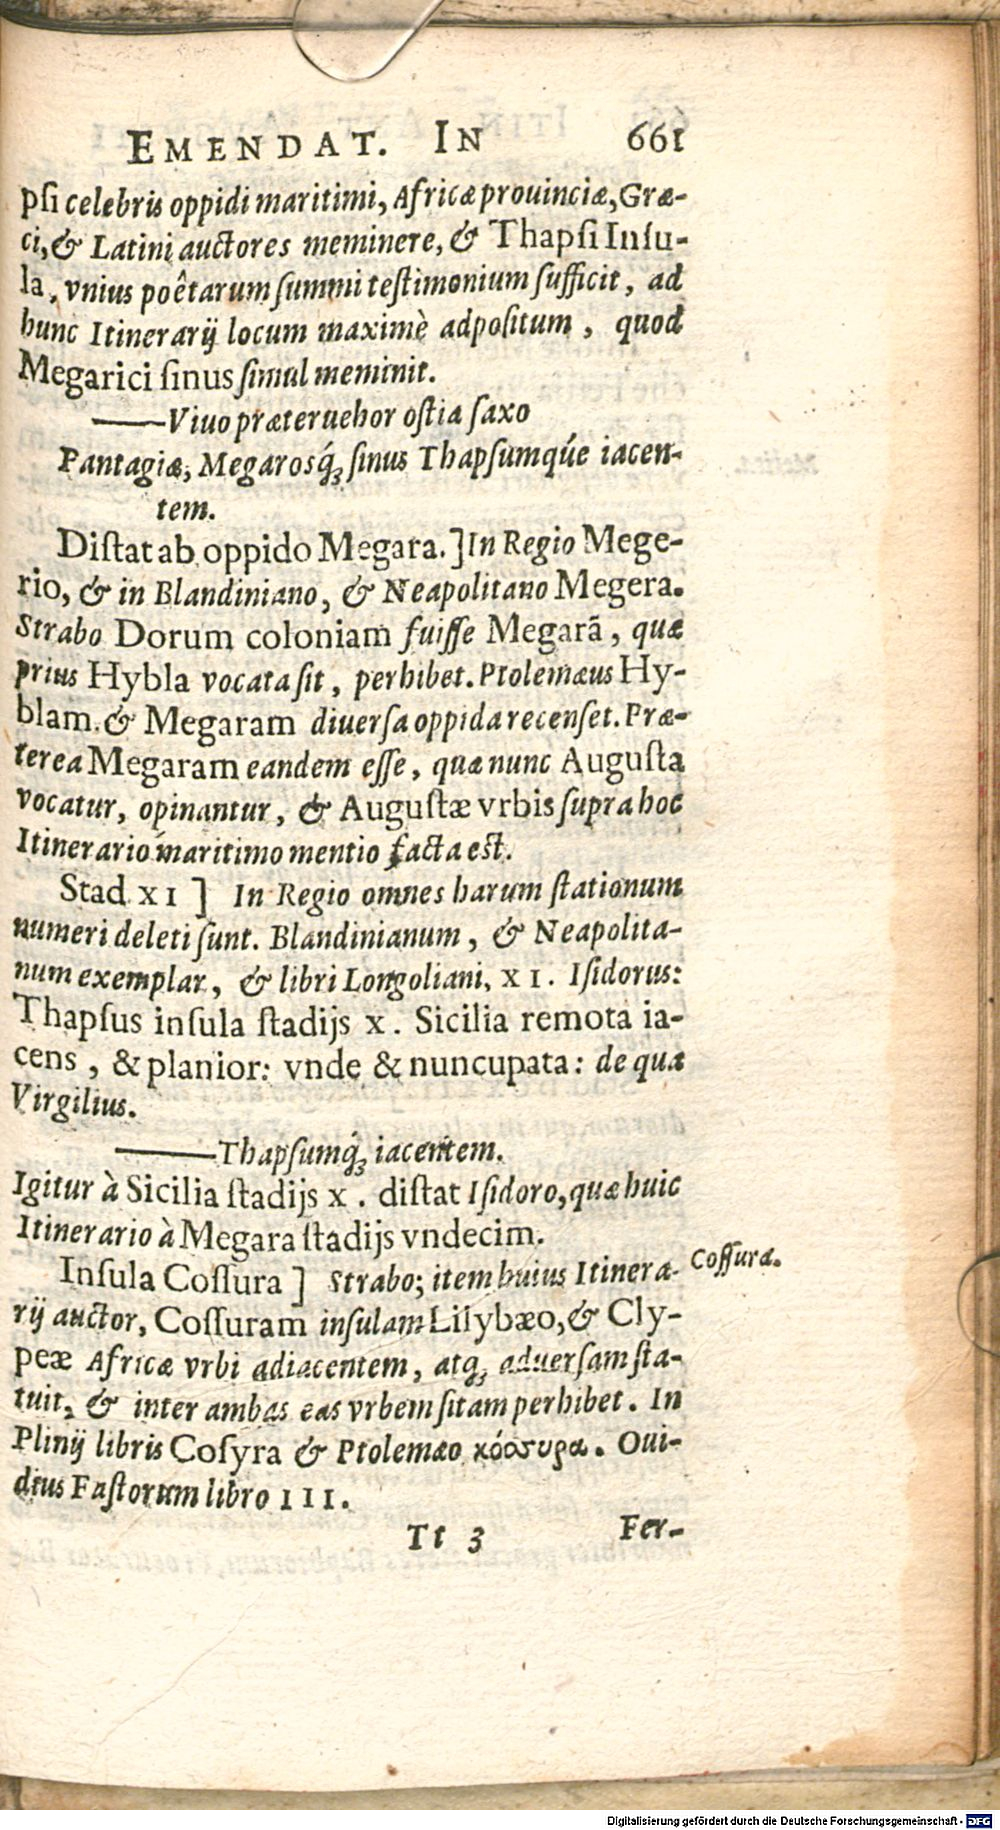 EMENDAT. IN 661
pſi celebris oppidi maritimi, Africæ prouinciæ, Græ-
ci, & Latini auctores meminere, & Thapſi Inſu-
la, vnius poêtarum ſummi teſtimonium ſufficit, ad
hunc Itinerarij locum maximè adpoſitum, quod
Megarici ſinus ſimul meminit.
——Viuo præteruehor oſtia ſaxo
Pantagiæ, Megarosq́ꝫ ſinus Thapſumqúe iacen-
tem.
Diſtat ab oppido Megara.] In Regio Mege-
rio, & in Blandiniano, & Neapolitano Megera.
Strabo Dorum coloniam fuiſſe Megarā, quæ
prius Hybla vocata ſit, perhibet. Ptolemæus Hy-
blam & Megaram diuerſa oppida recenſet. Præ-
terea Megaram eandem eſſe, quæ nunc Auguſta
vocatur, opinantur, & Auguſtæ vrbis ſupra hoc
Itinerario maritimo mentio facta est.
Stad. XI] In Regio omnes harum ſtationum
numeri deleti ſunt. Blandinianum, & Neapolita-
num exemplar, & libri Longoliani, XI. Iſidorus:
Thapſus inſula ſtadijs x. Sicilia remota ia-
cens, & planior: vnde & nuncupata: de qua
Virgilius.
——Thapſumq́ꝫ iacentem.
Igitur à Sicilia ſtadijs x. diſtat Iſidoro, quæ huic
Itinerario à Megara ſtadijs vndecim.
Inſula Coſſura] Strabo; item huius Itinera-
Coſſura.
rij auctor, Coſſuram inſulam Lilybæo, & Cly-
peæ Africæ vrbi adiacentem, atqꝫ aduerſam ſta-
tuit, & inter ambas eas vrbem ſitam perhibet. In
Plinij libris Coſyra & Ptolemæo κόσσυρα. Oui-
dius Faſtorum libro III.
Tt 3 Fer-
Digitalisierung gefördert durch die Deutsche Forschungsgemeinschaft - DFG